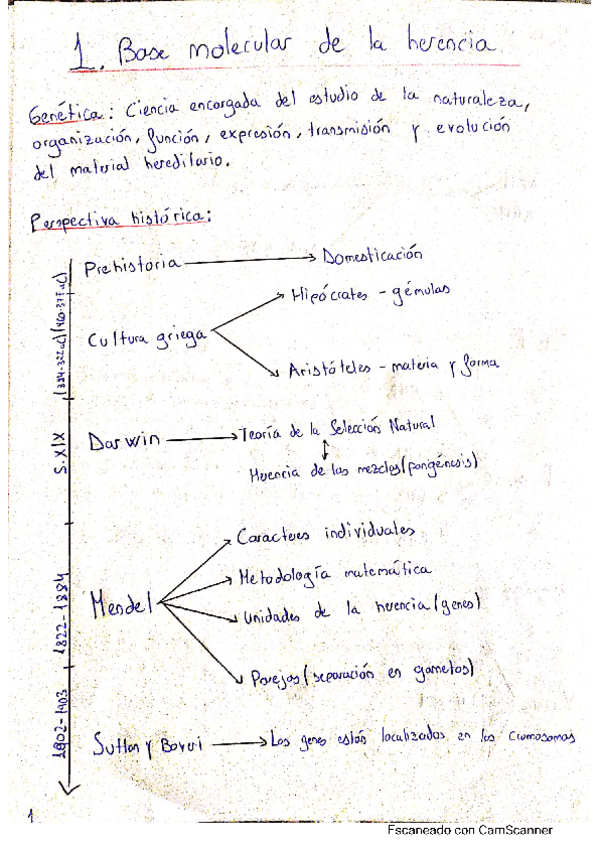 1. Base molecular de la herencia
Genética: Ciencia encargada del estudio de la naturaleza,
organización, función, expresión, transmisión y evolución
del material hereditario.
Perspectiva histórica:
(384-322 aC) (460-377 aC)
Prehistoria → Domesticación
Cultura griega
Hipócrates - gémulas
Aristóteles - materia y forma
S. XIX
Darwin → Teoría de la Selección Natural
↕
Herencia de las mezclas (pangénesis)
1822-1884
Mendel
Caracteres individuales
Metodología matemática
Unidades de la herencia (genes)
Parejas (separación en gametos)
1902-1903
Sutton y Boveri → Los genes están localizados en los cromosomas
1
Escaneado con CamScanner